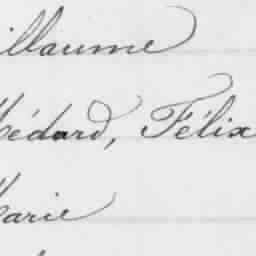 illaume
Médard, Félix
Marie